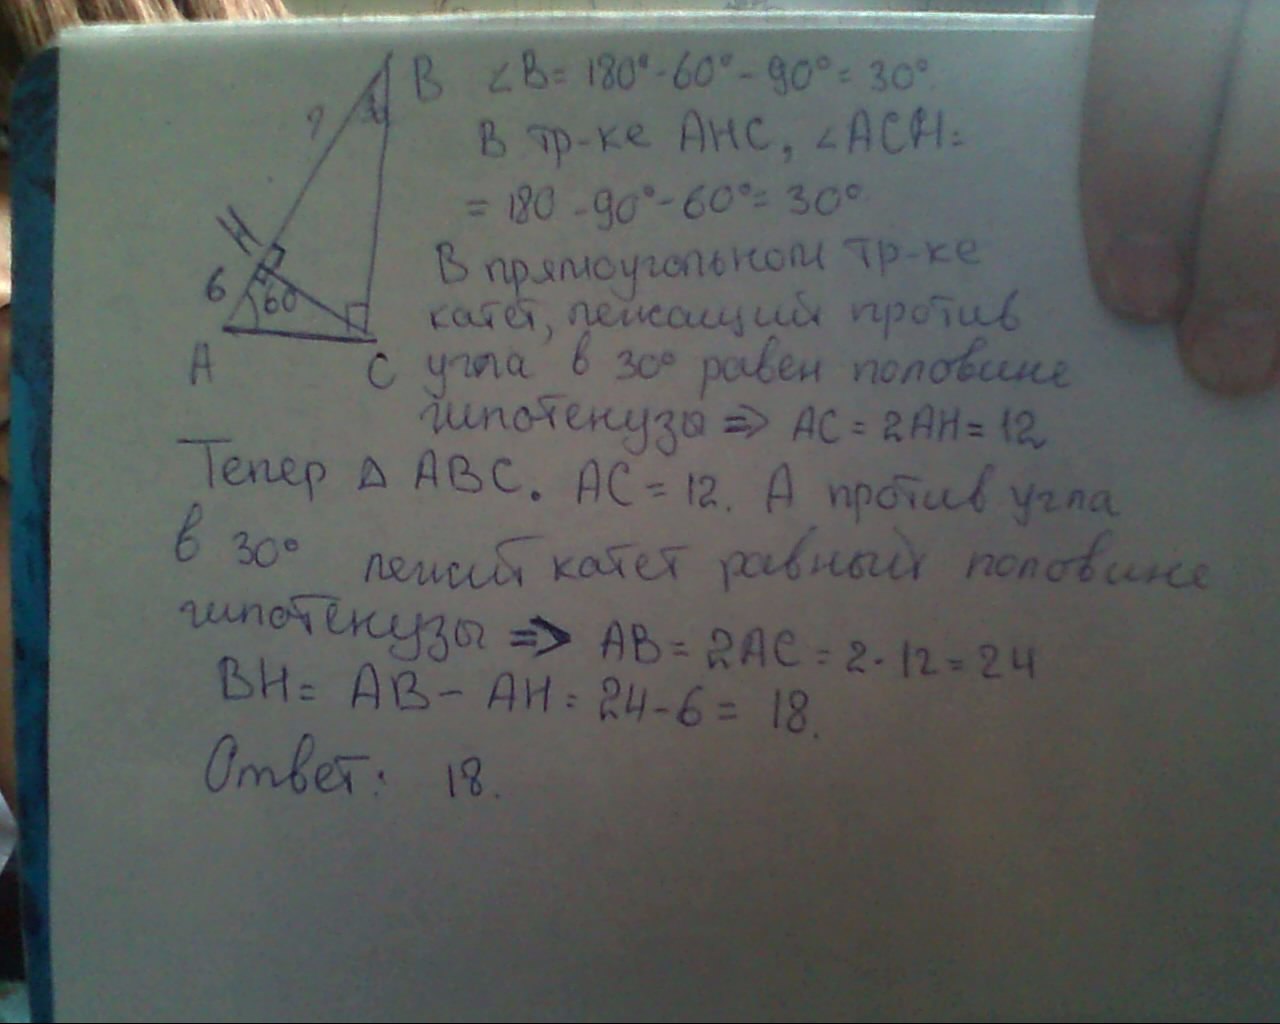 B ∠B= 180°-60°-90°= 30°
?
В тр-ке AHC, ∠ACH=
= 180-90°-60°= 30°
H
В прямоугольном тр-ке
6 60
катет, лежащий против
A C угла в 30° равен половине
гипотенузы => AC = 2AH = 12
Тепер Δ ABC. AC = 12. А против угла
в 30° лежит катет равный половине
гипотенузы => AB = 2AC = 2·12 = 24
BH = AB - AH = 24-6 = 18.
Ответ: 18.